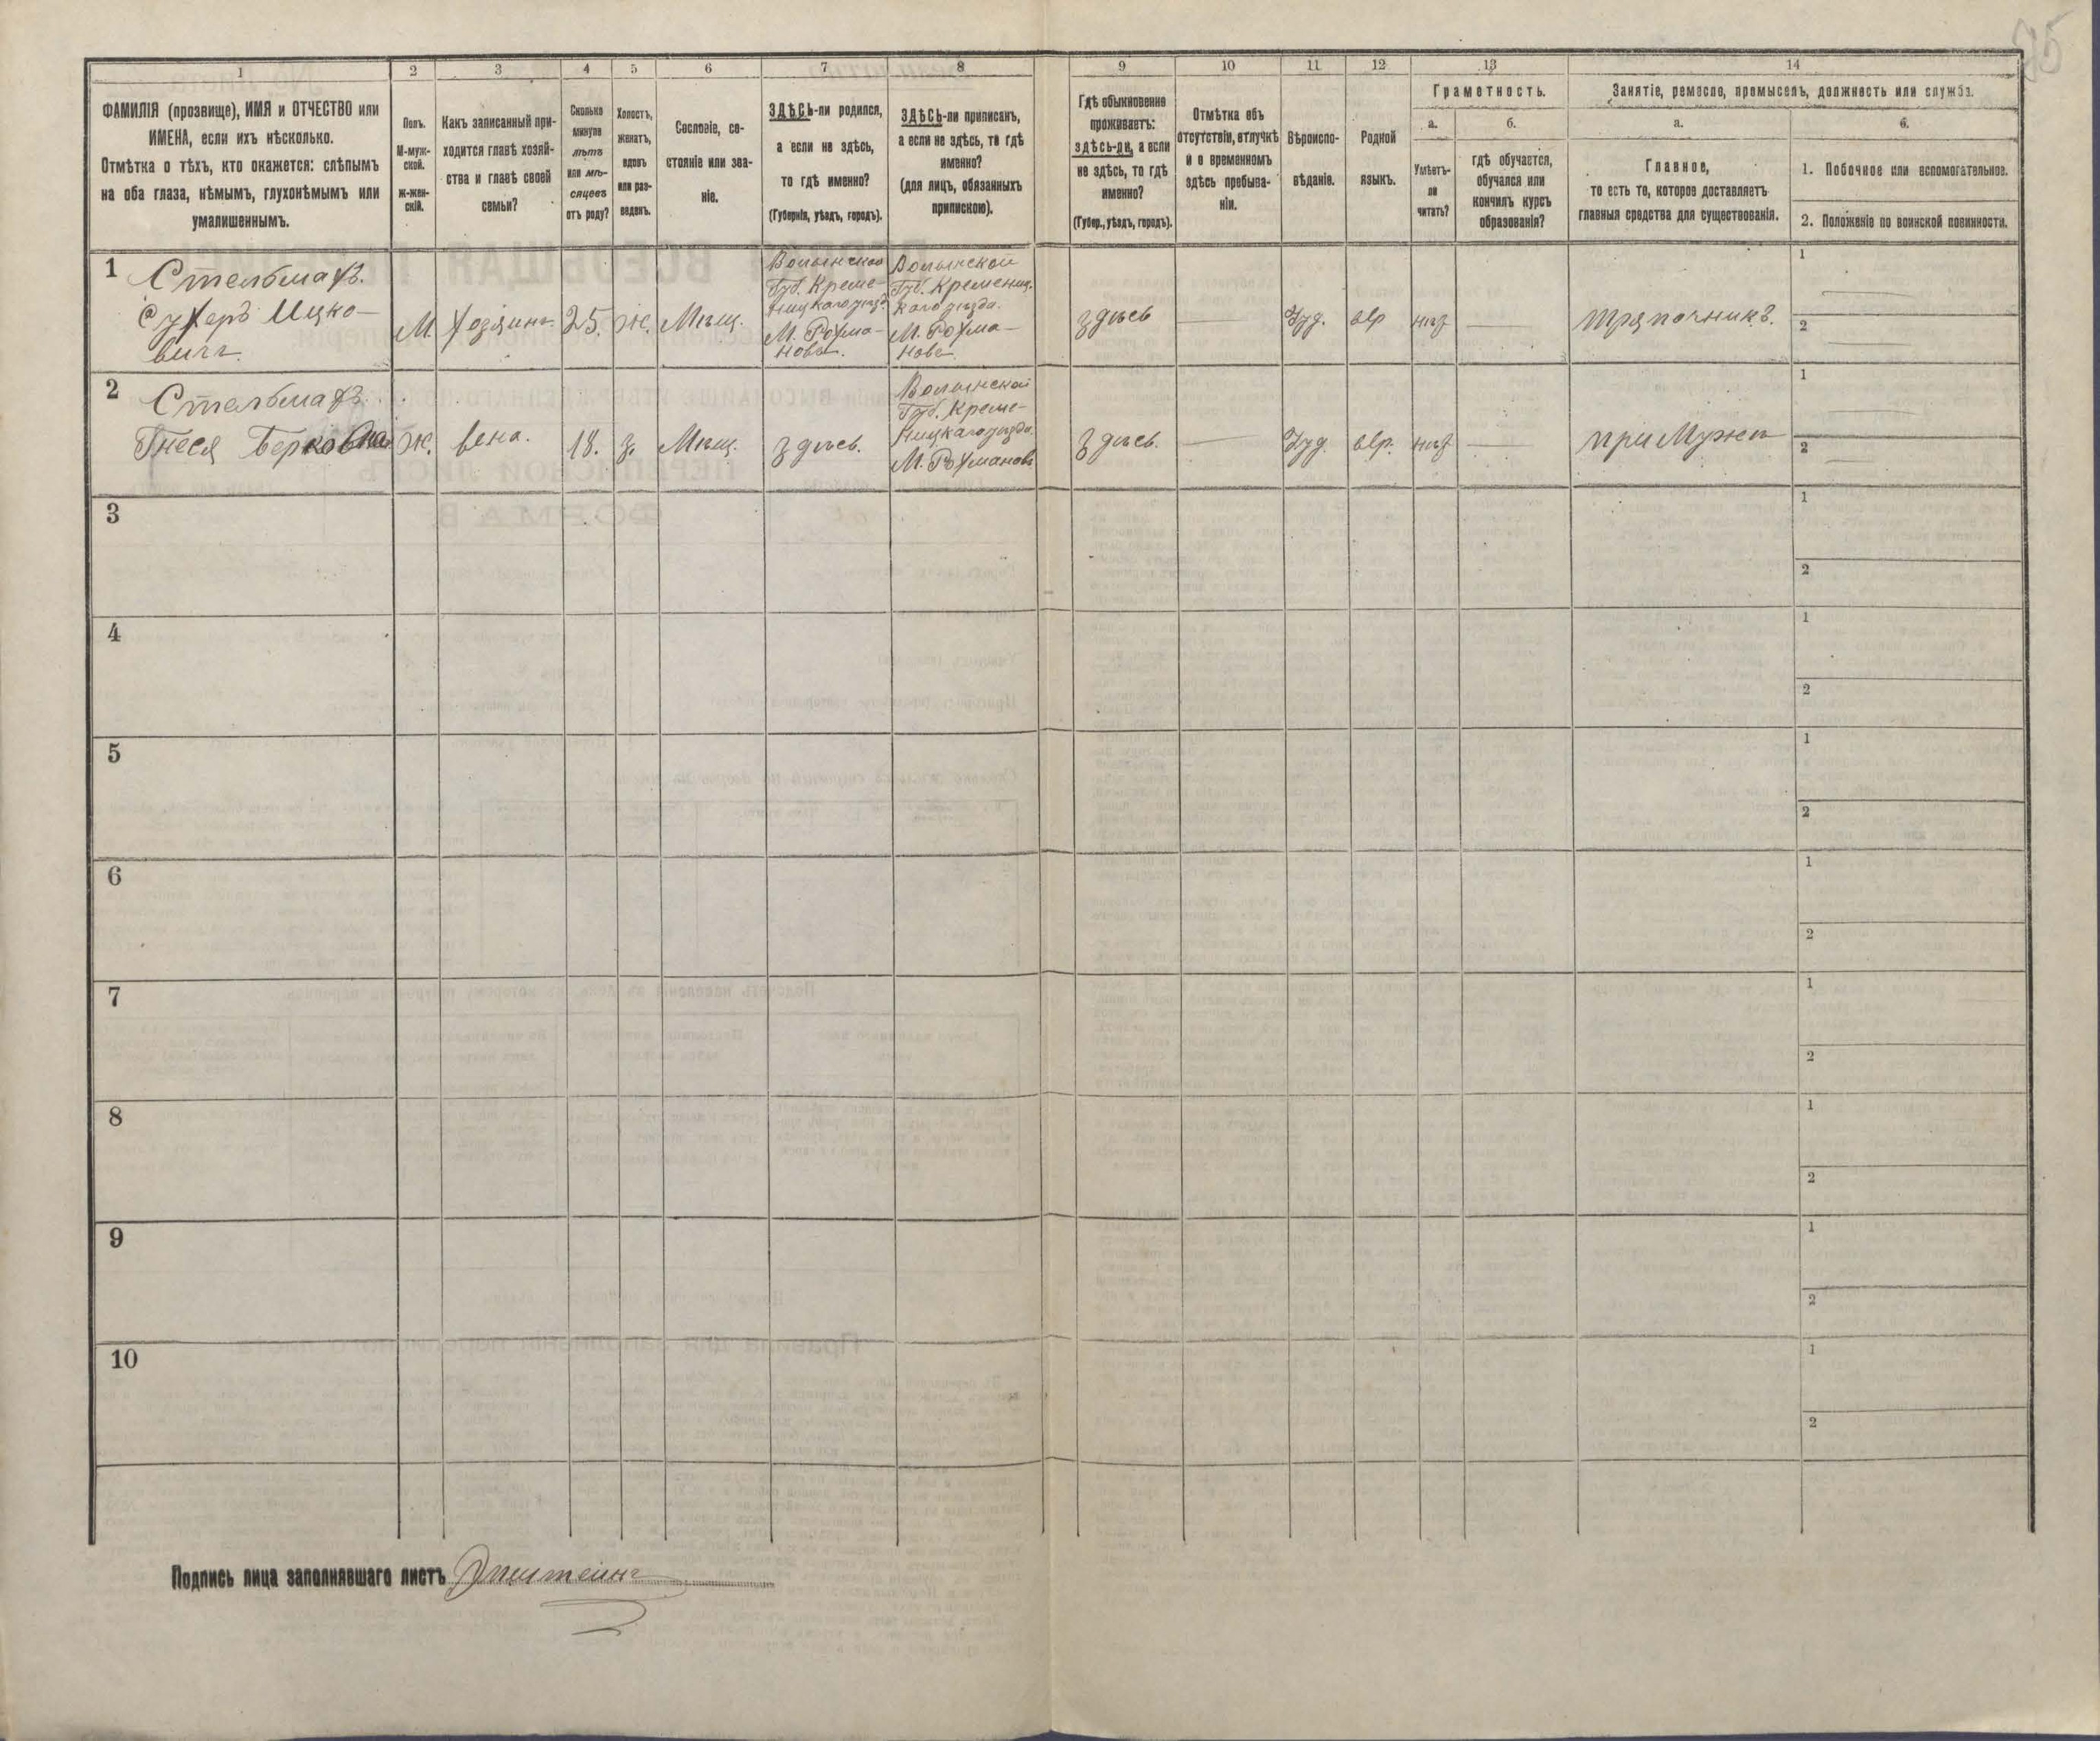 95
1
2
3
4
5
6
7
8
9
10
11
12
13
14
ФАМИЛІЯ (прозвище), ИМЯ и ОТЧЕСТВО или
ИМЕНА, если ихъ нѣсколько.
Отмѣтка о тѣхъ, кто окажется: слѣпымъ
на оба глаза, нѣмымъ, глухонѣмымъ или
умалишеннымъ.
Полъ.
М-муж-
ской.
ж-жен-
скій.
Какъ записанный при-
ходится главѣ хозяй-
ства и главѣ своей
семьи?
Сколько
минуло
лѣтъ
или мѣ-
сяцевъ
отъ роду?
Холостъ,
женатъ,
вдовъ
или раз-
веденъ.
Сословіе, со-
стояніе или зва-
ніе.
ЗДѢСЬ-ли родился,
а если не здѣсь,
то гдѣ именно?
(Губернія, уѣздъ, городъ).
ЗДѢСЬ-ли приписанъ,
а если не здѣсь, то гдѣ
именно?
(для лицъ, обязанныхъ
припискою).
Гдѣ обыкновенно
проживаетъ:
здѣсь-ли, а если
не здѣсь, то гдѣ
именно?
(Губер., уѣздъ, городъ).
Отмѣтка объ
отсутствіи, отлучкѣ
и о временномъ
здѣсь пребыва-
ніи.
Вѣроиспо-
вѣданіе.
Родной
языкъ.
Грамотность.
а.
Умѣетъ-
ли
читать?
б.
гдѣ обучается,
обучался или
кончилъ курсъ
образованія?
Занятіе, ремесло, промыселъ, должность или служба.
а.
Главное,
то есть то, которое доставляетъ
главныя средства для существованія.
б.
1. Побочное или вспомогательное.
2. Положеніе по воинской повинности.
1
Стельмахъ.
Сухеръ Ицко-
вичъ.
М.
Хозяинъ.
25.
Ж.
Мѣщ.
Волынской
Губ. Креме-
ницкаго уѣзд.
М. Рохма-
нова.
Волынской
Губ. Кременец.
каго уѣзда.
М. Рохма-
нова
здѣсь
Іуд.
евр
нѣт
тряпочникъ.
1
2
2
Стельмахъ.
Гнеся Берковна
Ж.
Жена.
18.
з.
Мѣщ.
здѣсь.
Волынской
Губ. Креме-
ницкаго уѣзда.
М. Рохманова
здѣсь.
Іуд.
евр.
нѣт
при Мужѣ
1
2
3
1
2
4
1
2
5
1
2
6
1
2
7
1
2
8
1
2
9
1
2
10
1
2
Подпись лица заполнявшаго листъ Эпштейнъ